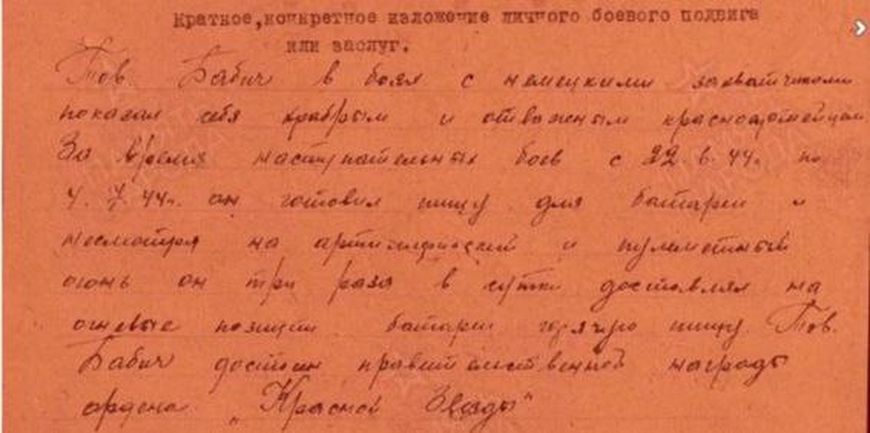 Краткое, конкретное изложение личного боевого подвига
или заслуг.
Тов. Бабич в боях с немецкими захватчиками
показал себя храбрым и отважным красноармейцем.
За время наступательных боев с 22.6.44г. по
4.7.44г. он готовил пищу для батареи и
несмотря на артиллерийский и пулеметный
огонь он три раза в сутки доставлял на
огневые позиции батареи горячую пищу. Тов.
Бабич достоин правительственной награды
ордена "Красной Звезды"